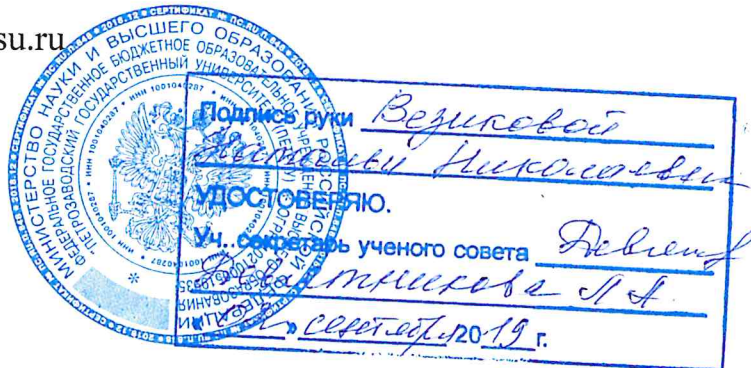 su.ru
МИНИСТЕРСТВО НАУКИ И ВЫСШЕГО ОБРАЗОВАНИЯ РОССИЙСКОЙ ФЕДЕРАЦИИ
ФЕДЕРАЛЬНОЕ ГОСУДАРСТВЕННОЕ БЮДЖЕТНОЕ ОБРАЗОВАТЕЛЬНОЕ УЧРЕЖДЕНИЕ ВЫСШЕГО ОБРАЗОВАНИЯ
"ПЕТРОЗАВОДСКИЙ ГОСУДАРСТВЕННЫЙ УНИВЕРСИТЕТ"
ИНН 1001040287
Подпись руки Везиковой
Натальи Николаевны
УДОСТОВЕРЯЮ.
Уч. секретарь ученого совета
Л А
» сентября 2019 г.